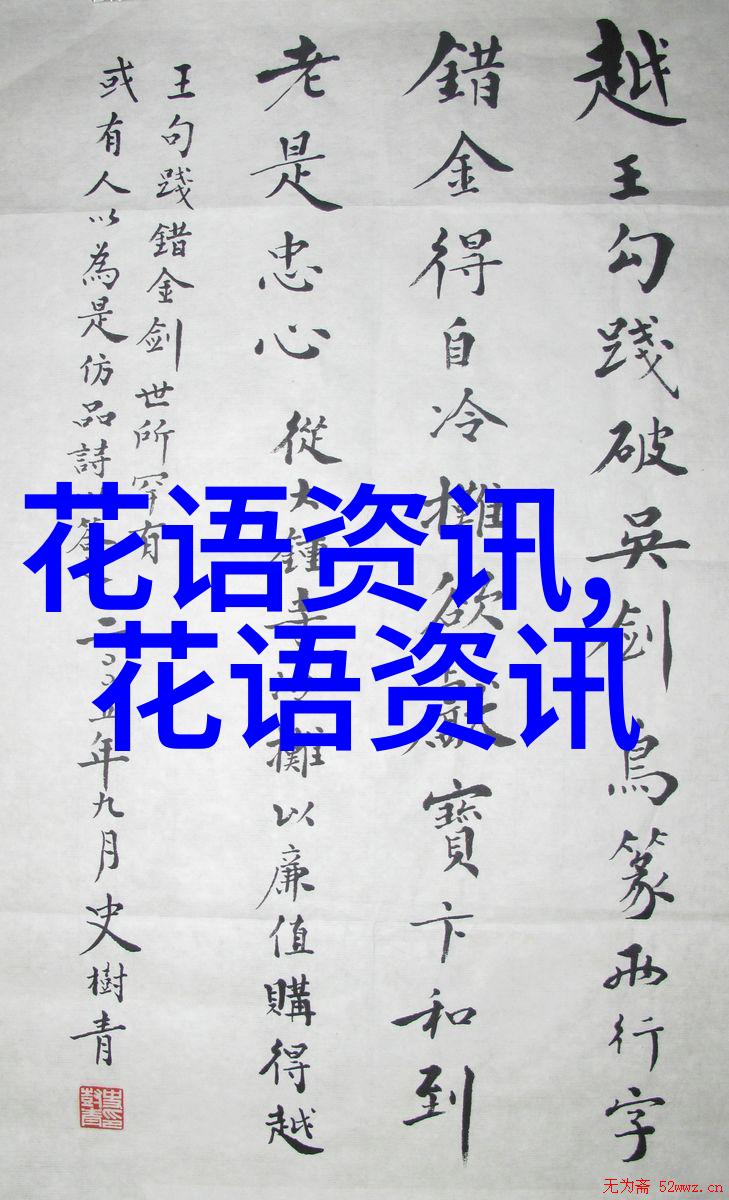 越王勾踐破吳劍鳥篆兩行字
錯金得自冷攤欲獻寶卞和到
老是忠心 從大鐘寺攤以廉值購得越
王句踐錯金劍世所罕有
或有人以為是仿品詩二〇〇五年九月史樹青
花语资讯,
花语资讯
无为斋 52wwz.cn